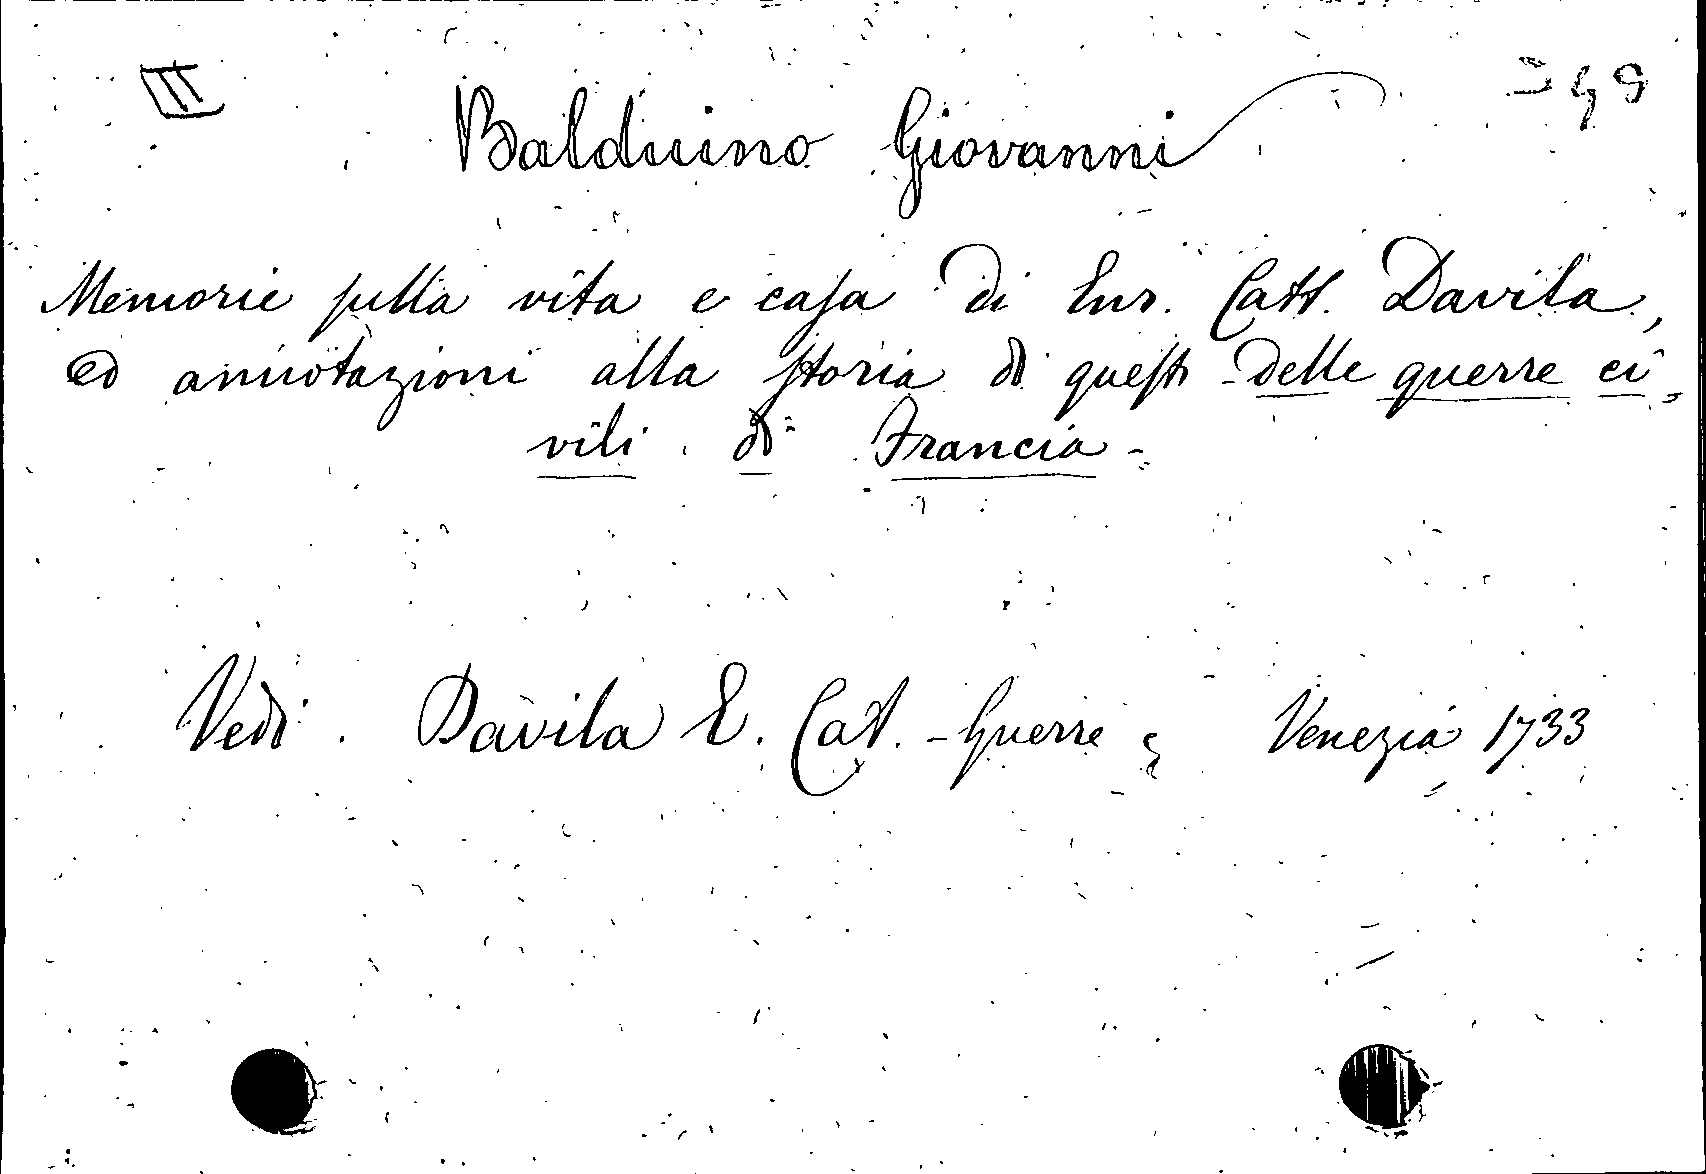 III
Balduino Giovanni
Memorie sulla vita e casa di Enr. Catt. Davila,
ed annotazioni alla storia di questi - delle guerre ci-
vili di Francia -
Vedi. Davila E. Cat. - Guerre Venezia 1733